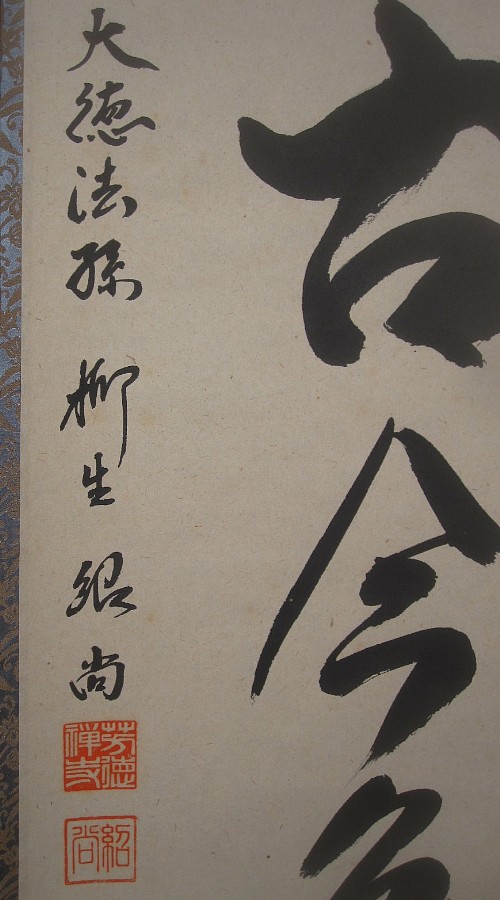 古今
大徳法孫 柳生 紹尚
芳徳禅寺
紹尚